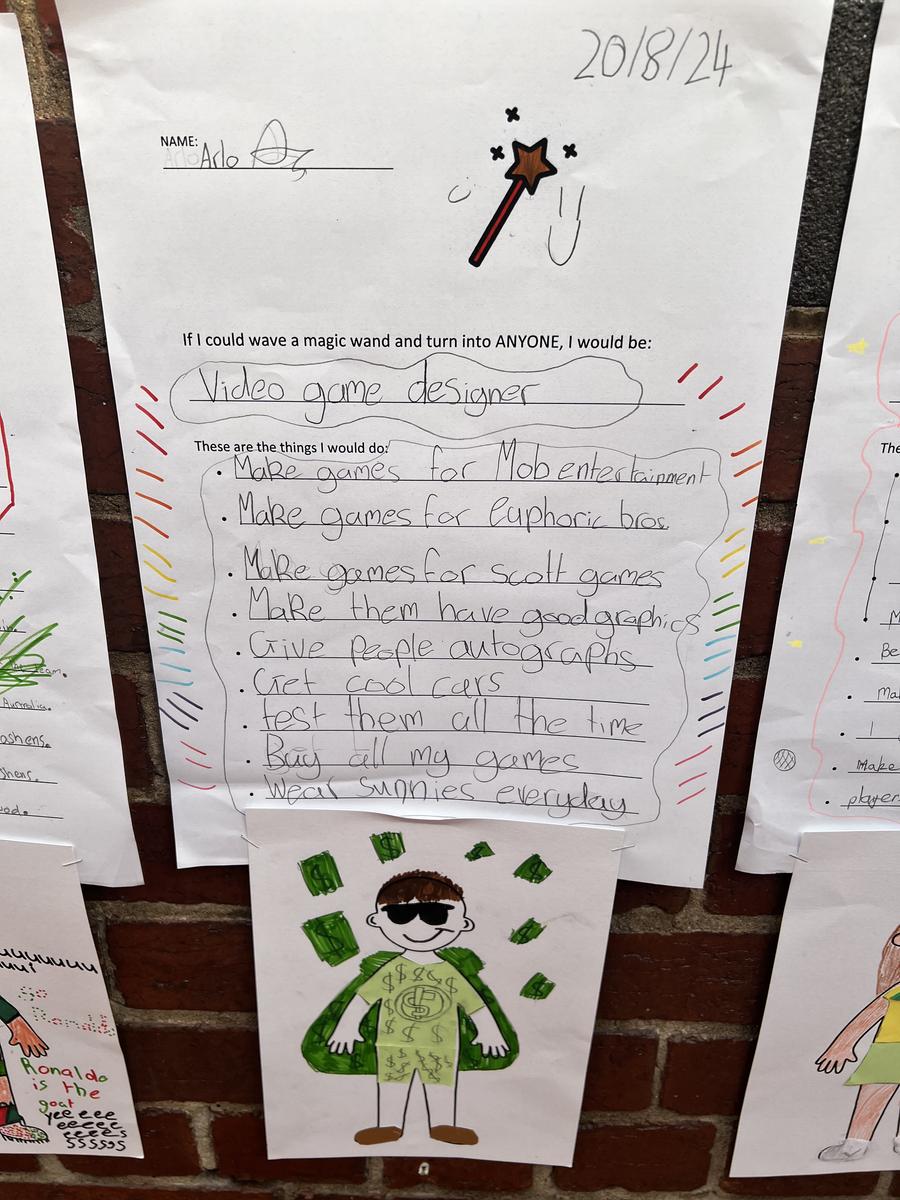 20/8/24
NAME: Arlo
If I could wave a magic wand and turn into ANYONE, I would be:
Video game designer
These are the things I would do:
• Make games for Mob entertainment
• Make games for Euphoric bros.
• Make games for scott games
• Make them have good graphics
• Give people autographs
• Get cool cars
• test them all the time
• Buy all my games
• Wear sunnies everyday
Australia.
ashens.
shens.
The
M
Be
Ma
I
Make
player
Ronaldo
is the
goat
yeeeeee
eeeee
eeees
sssss